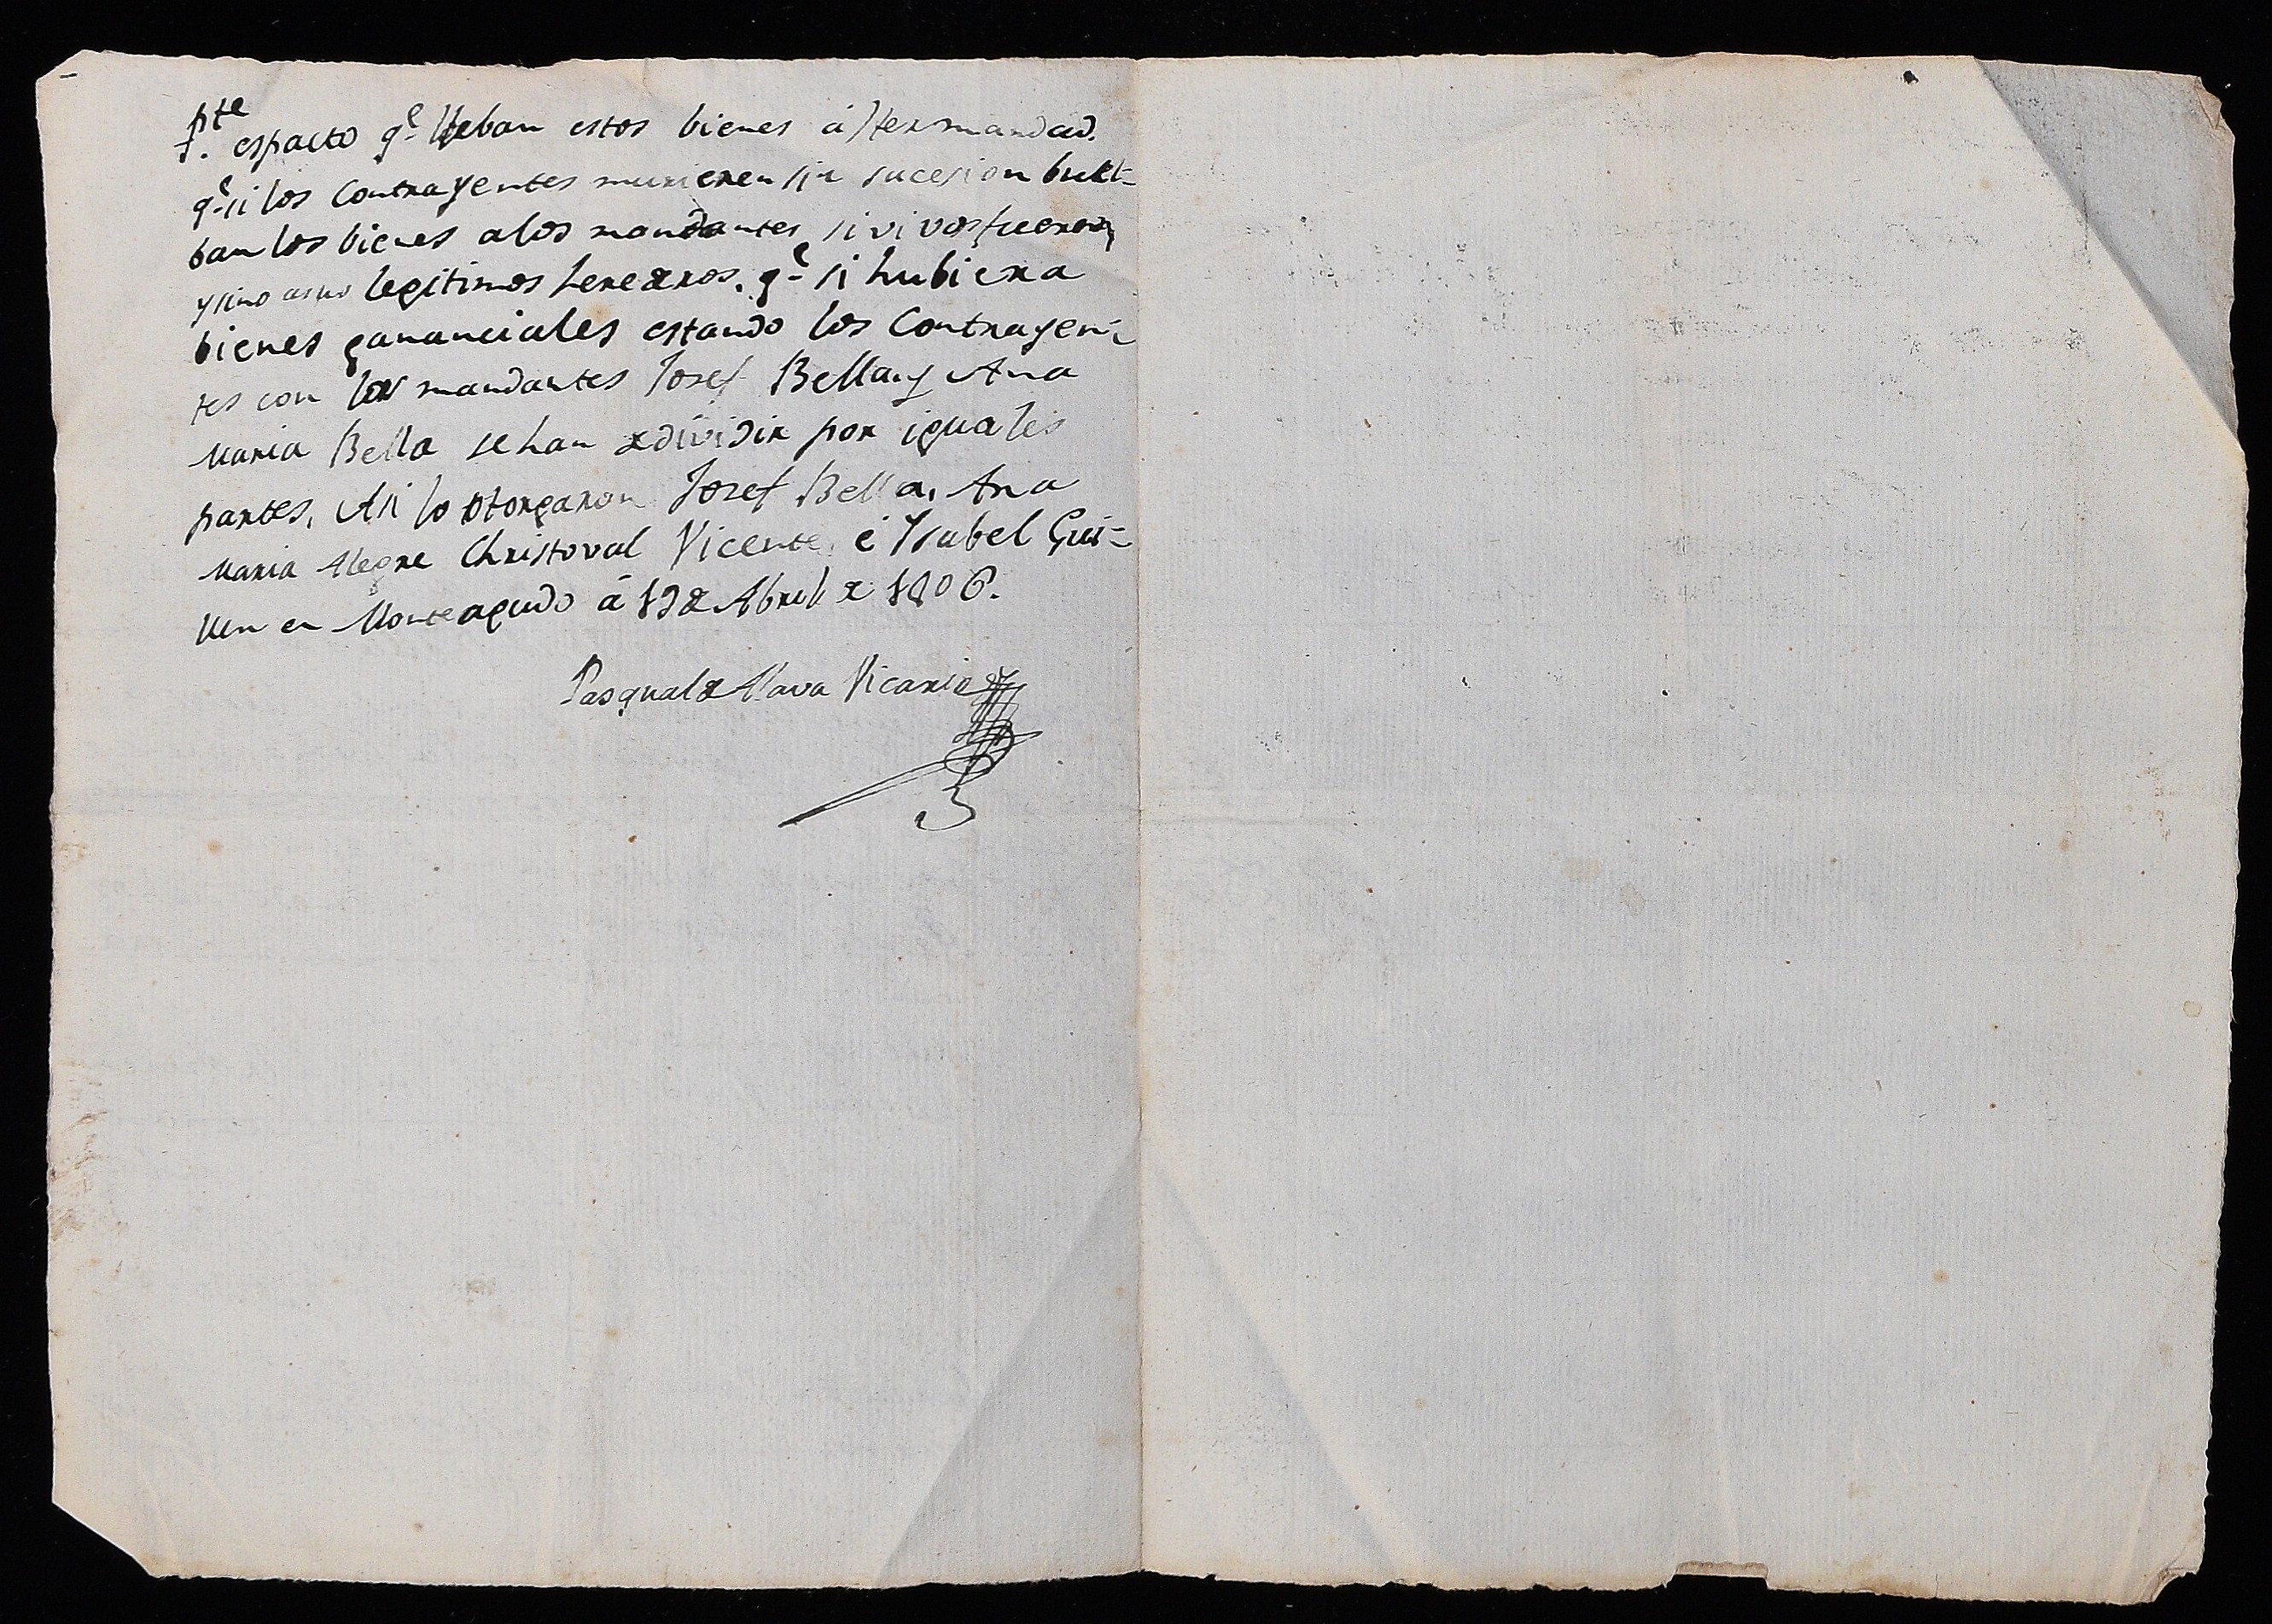 pte
f. espacto qe lleban estos bienes á Hermandad.
qe si los Contrayentes murieren sin sucesion buel-
ban los bienes a los mandantes, si vivos fueren,
y sino a sus legitimos herederos. qe si hubiera
bienes gananciales estando los Contrayen-
tes con los mandantes Josef Bella y Ana
Maria Bella se han de dividir por iguales
partes. Asi lo otorgaron Josef Bella, Ana
Maria Alegre Christoval Vicente, é Ysabel Gui-
llen en Monteagudo á 19 de Abril de 1806.
Pasqual de Alava Vicario